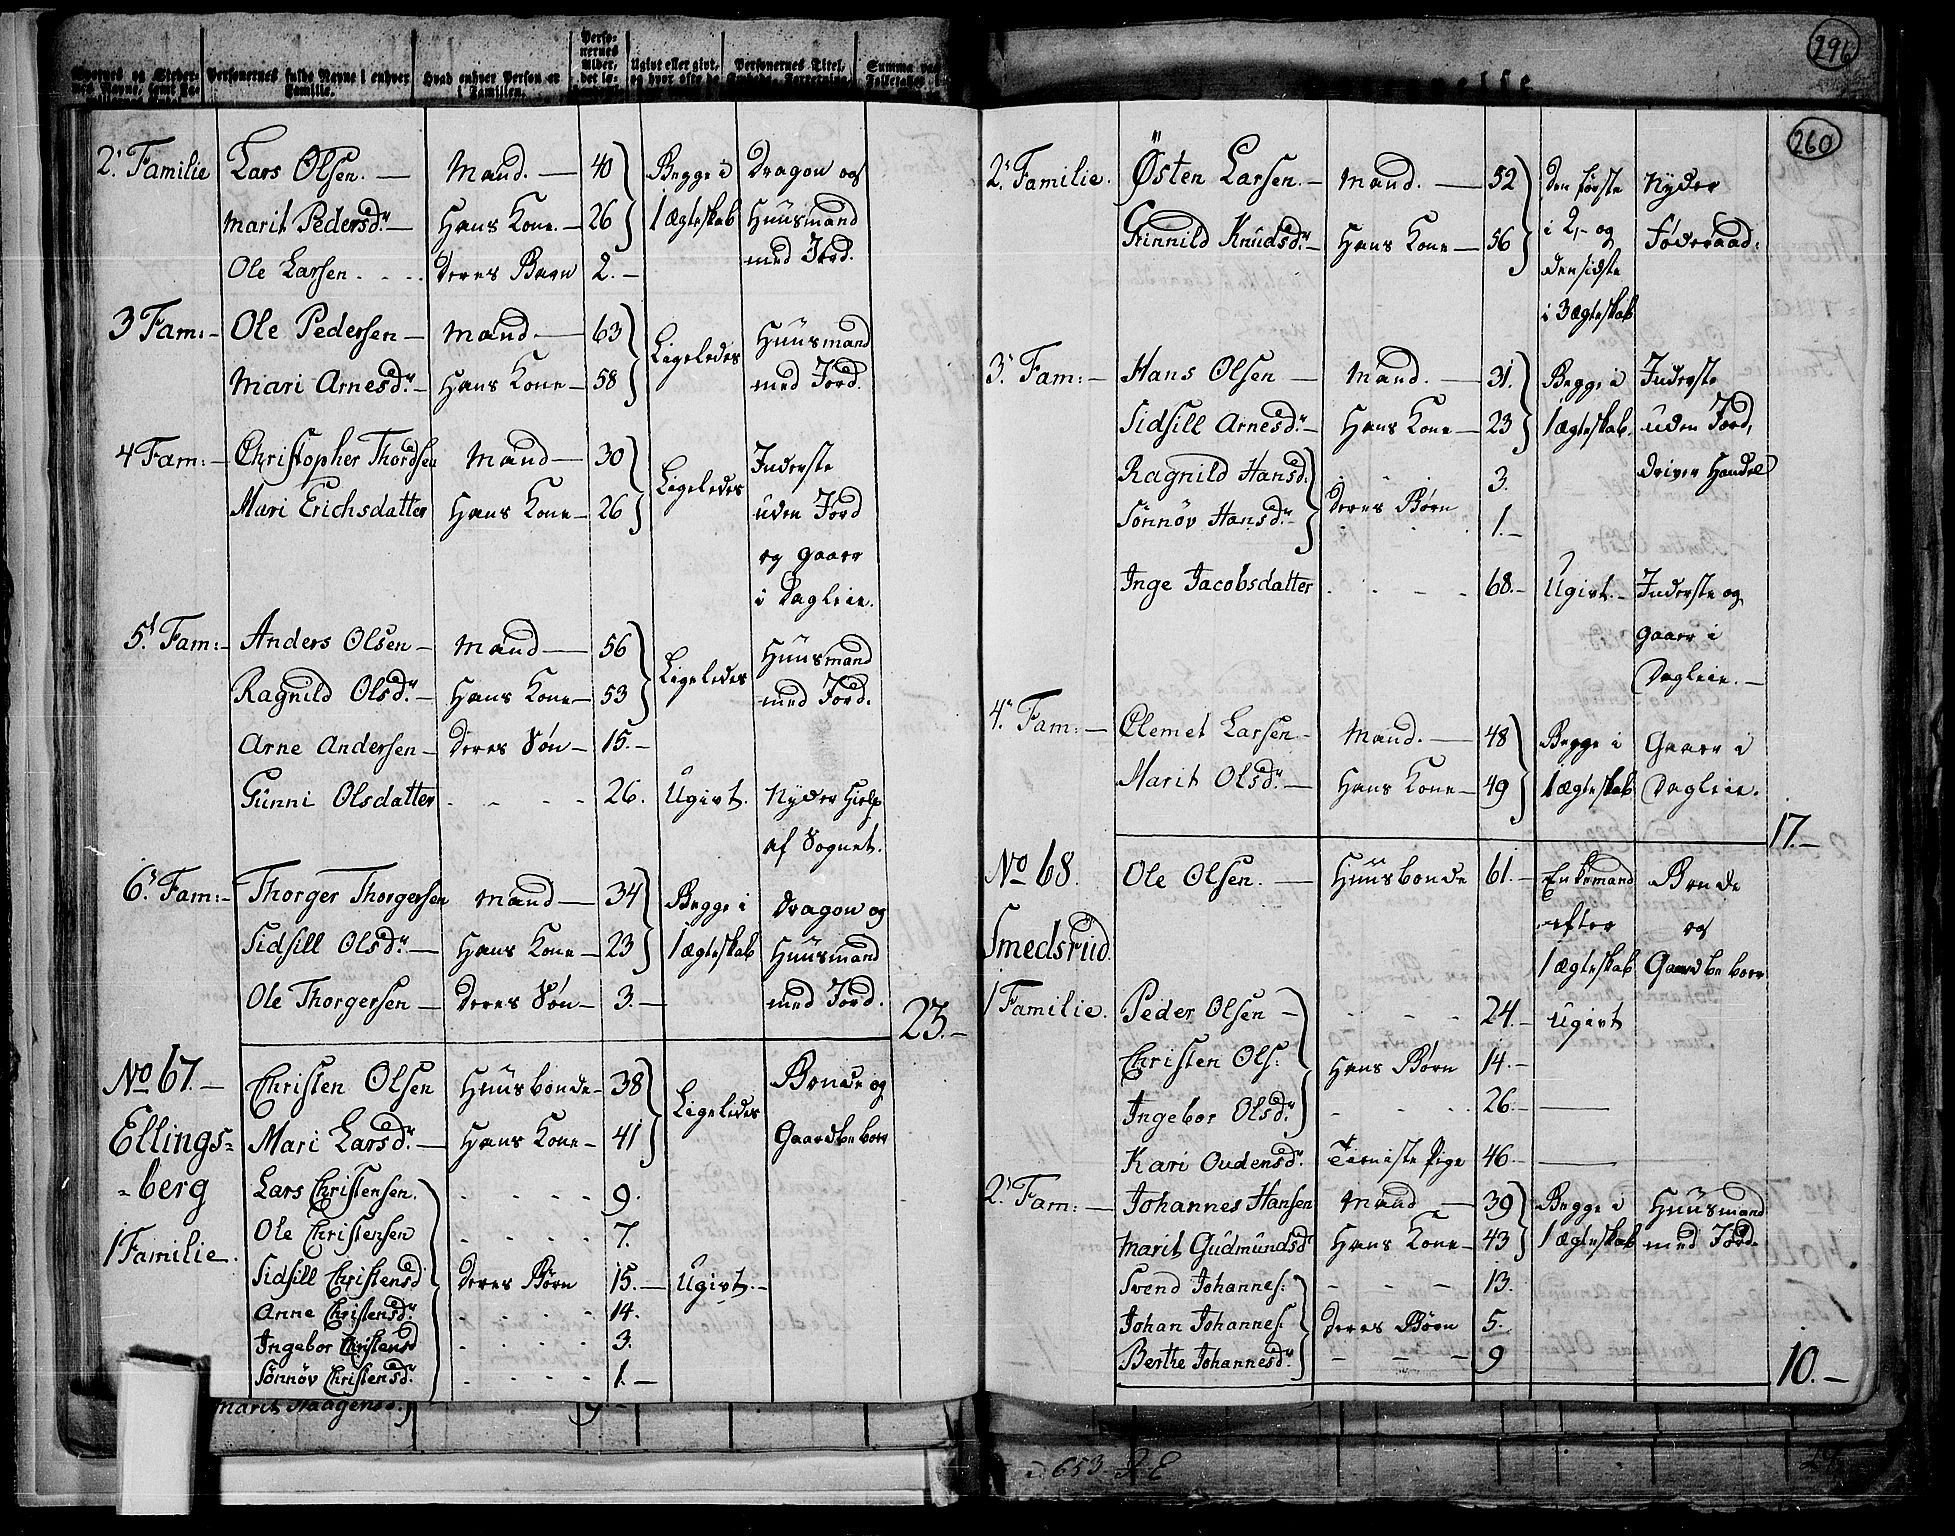 Personernes fulde Navne i enhver Familie.
Hvad enhver Person er i Familien.
Personernes Alder,
Ugivt eller givt, og hvor ofte de
Personernes Titel, Embede, Forretning,
Summa
2. Familie Lars Olsen. — Mand. — 40 Begge i Dragon og
Marit Pedersd:r — Hans Kone. — 26 1 ægteskab Huusmand
Ole Larsen . . . Deres Barn 2. — med Jord.
3 Fam: — Ole Pedersen — Mand — 63 Ligeledes Huusmand
Mari Arnesd:r — Hans Kone — 58 med Jord.
4 Fam: — Christopher Thordsen Mand — 30 Ligeledes Inderste
Mari Erichsdatter Hans Kone — 26 uden Jord
og gaaer
i Dagleie.
5. Fam: — Anders Olsen — Mand — 56 Ligeledes Huusmand
Ragnild Olsd:r — Hans Kone — 53 med Jord.
Arne Andersen — Deres Søn — 15. —
Gunni Olsdatter - - - - 26. Ugivt. Nyder Hielp
af Sognet.
6. Fam: — Thorger Thorgersen Mand — 34 Begge i Dragon og
Sidsill Olsd:r — Hans Kone — 23 1 ægteskab Huusmand
Ole Thorgersen — Deres Søn — 3. — med Jord.
23. —
No 67. — Christen Olsen Huusbonde — 38 Ligeledes Bonde og
Ellings= Mari Larsd:r — Hans Kone — 41 Gaardbeboer
=berg Lars Christensen. - - - - 9.
1 Familie. Ole Christensen - - - - 7.
Sidsill Christensd Deres Børn 15. — Ugivt. —
Anne Christensd:r - - - - 14.
Ingebor Christensd - - - - 3.
Sønnøv Christensd:r - - - - 1. —
Marit Haagensd:
296
260
2. Familie. Østen Larsen. — Mand. — 52 Den første Nyder
Grinnild Knudsd:r — Hans Kone — 56 i 2,- og Føderaad:
den sidste
i 3 ægteskab
3. Fam: — Hans Olsen — Mand. — 31. Begge i Inderste
Sidsill Arnesd:r — Hans Kone — 23 1 ægteskab. uden Jord,
Ragnild Hansd: 3. driver Handel
Sønnøv Hansd:r — Deres Børn 1. —
Inge Jacobsdatter . - - - 68. — Ugivt. — Inderste og
gaaer i
Dagleie. —
4. Fam: — Clemet Larsen — Mand. — 48 Begge i Gaaer i
Marit Olsd:r — Hans Kone — 49 1 ægteskab Dagleie.
17. —
No 68. Ole Olsen. — Huusbonde 61. — Enkemand Bonde
efter og
Smedsrud. 1 ægteskab Gaardbeboer
1 Familie. Peder Olsen — - - - 24. — Ugivt
Christen Ols: Hans Børn 14. —
Ingebor Olsd:r - - - 26. — —
Kari Oudensd:r Tieniste Pige 46. —
2. Fam: — Johannes Hansen Mand — 39 Begge i Huusmand
Marit Gudmundsd:r Hans Kone — 43 1 ægteskab med Jord.
Svend Johannes: - - - 13.
Johan Johannes: Deres Børn 5.
Berthe Johannesd:r - - - 9
10. —
653